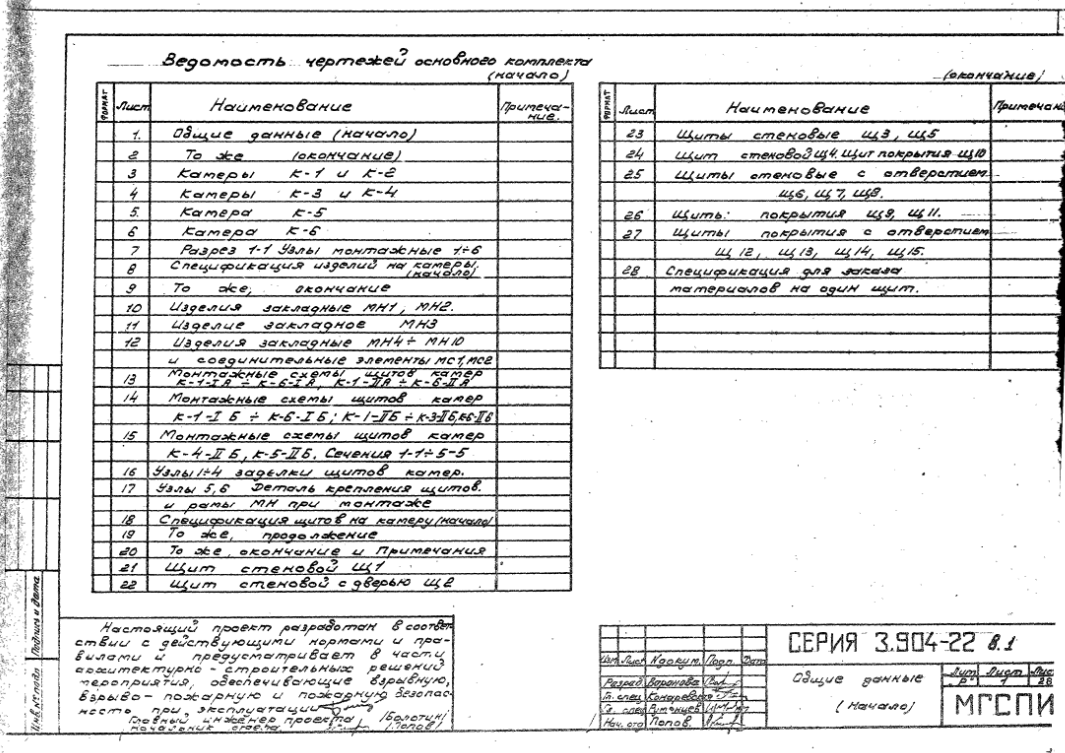 Ведомость чертежей основного комплекта
(начало)
ФОРМАТ Лист Наименование Примеча-
ние.
1. Общие данные (начало)
2 То же (окончание)
3 Камеры К-1 и К-2
4 Камеры К-3 и К-4
5. Камера К-5
6 Камера К-6
7 Разрез 1-1 Узлы монтажные 1÷6
8 Спецификация изделий на камеры.
(начало)
9 То же, окончание
10 Изделия закладные МН1, МН2.
11 Изделие закладное МН3
12 Изделия закладные МН4÷МН10
и соединительные элементы МС1, МС2
13 Монтажные схемы щитов камер
К-1-IА ÷ К-6-IА, К-1-IIА ÷ К-6-IIА
14 Монтажные схемы щитов камер
К-1-IБ ÷ К-6-IБ; К-1-IIБ ÷ К-3-IIБ, К-6-IIБ
15 Монтажные схемы щитов камер
К-4-IIБ, К-5-IIБ. Сечения 1-1÷5-5
16 Узлы 1÷4 заделки щитов камер.
17 Узлы 5,6 Деталь крепления щитов.
и рамы МН при монтаже
18 Спецификация щитов на камеру (начало)
19 То же, продолжение
20 То же, окончание и Примечания
21 Щит стеновой Щ1
22 Щит стеновой с дверью Щ2
(окончание)
ФОРМАТ Лист Наименование Примечан
23 Щиты стеновые Щ3, Щ5
24 Щит стеновой Щ4. Щит покрытия Щ10
25 Щиты стеновые с отверстием
Щ6, Щ7, Щ8.
26 Щиты: покрытия Щ9, Щ11.
27 Щиты покрытия с отверстием
Щ12, Щ13, Щ14, Щ15.
28 Спецификация для заказа
материалов на один щит.
Настоящий проект разработан в соответ
ствии с действующими нормами и пра-
вилами и предусматривает в части
архитектурно-строительных решений
мероприятия, обеспечивающие взрывную,
взрыво-пожарную и пожарную безопас-
ность при эксплуатации
Главный инженер проекта /Болотин/
Начальник отдела /Попов/
Подпись и дата
Инв.№ подл
Изм Лист №докум. Подп. Дата
Разраб. Воронова
Гл. спец
Гл. спец
Нач. отд Попов
СЕРИЯ 3.904-22 в.1
Общие данные
(начало)
Лит Лист Лис
Р 1 28
МГСПИ